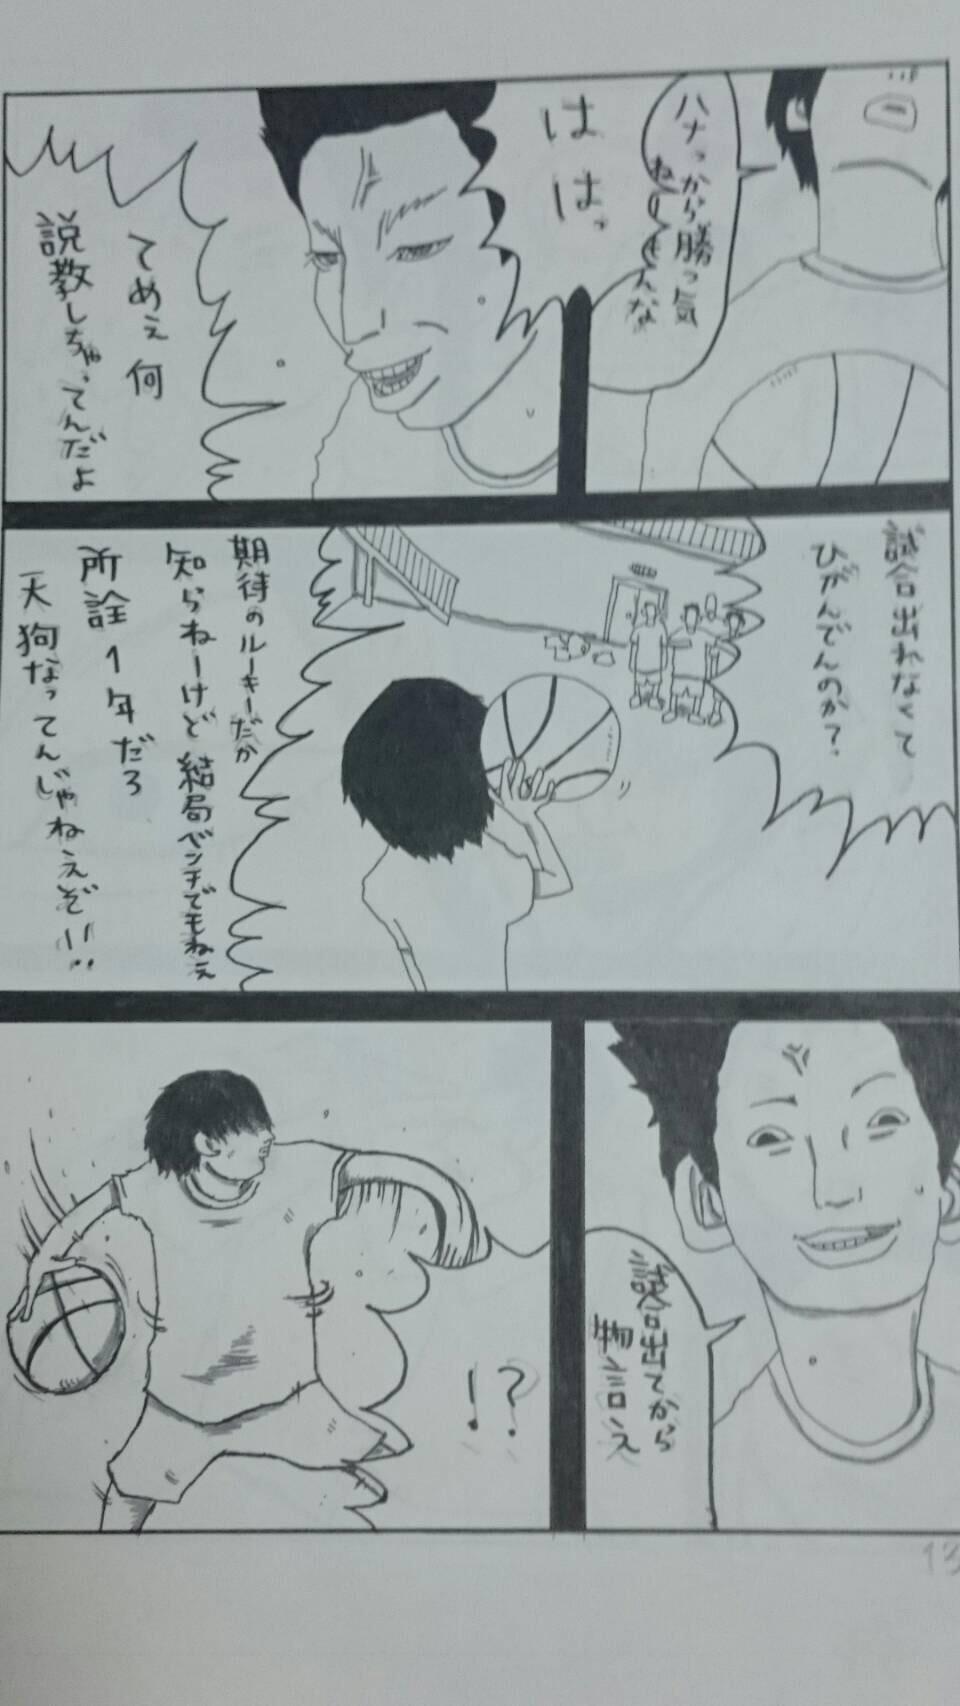 ハナっから勝つ気
ねーもんな
はは
はっ
てめぇ何
説教しちゃってんだよ
試合出れなくて
ひがんでんのか?
期待のルーキーだか
知らねーけど結局ベンチでもねぇ
所詮1年だろ
天狗なってんじゃねえぞ!!
試合出てから
物言え
!?
13